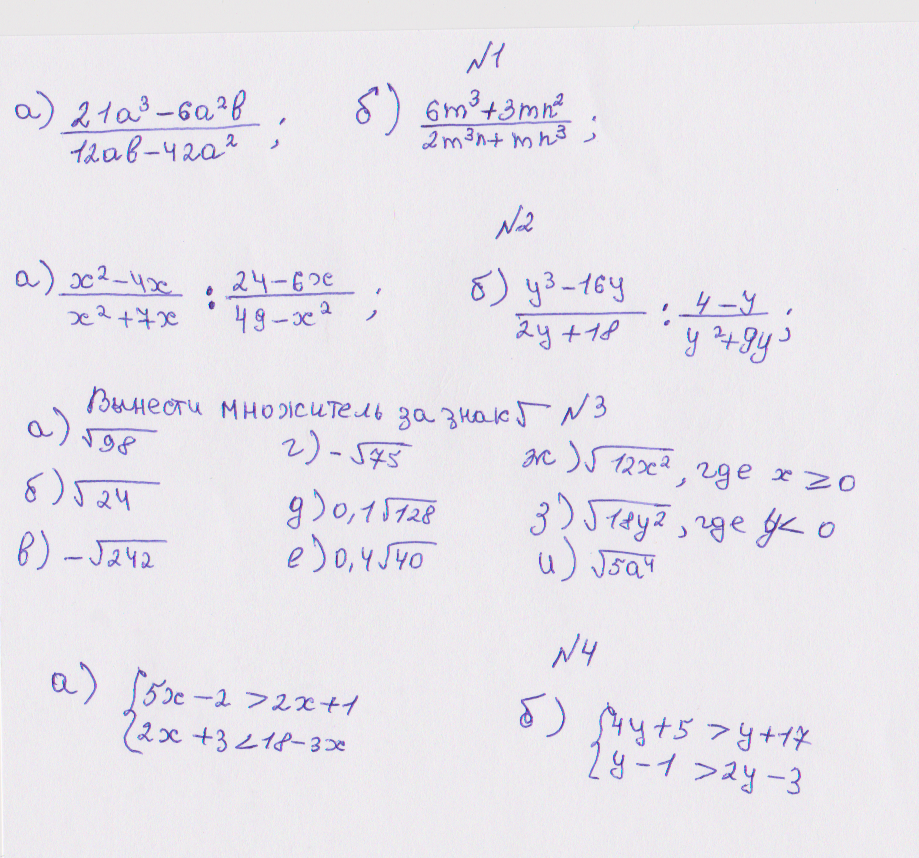 №1
а) (21a³ – 6a²b)/(12ab – 42a²); б) (6m³ + 3mn²)/(2m³n + mn³);
№2
а) (x² – 4x)/(x² + 7x) : (24 – 6x)/(49 – x²); б) (y³ – 16y)/(2y + 18) : (4 – y)/(y² + 9y);
Вынести множитель за знак √ №3
а) √98 г) –√75 ж) √12x², где x ≥ 0
б) √24 д) 0,1√128 з) √18y², где y < 0
в) –√242 е) 0,4√40 и) √5a⁴
№4
а) { 5x – 2 > 2x + 1 б) { 4y + 5 > y + 17
{ 2x + 3 < 18 – 3x { y – 1 > 2y – 3